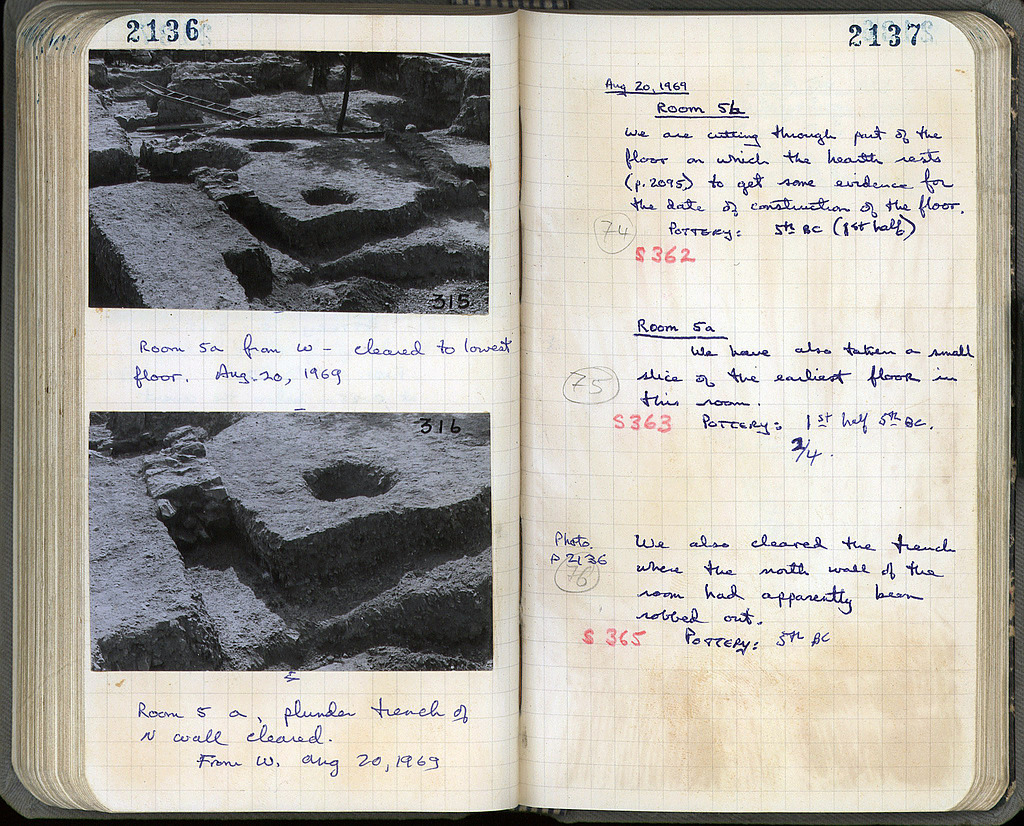 2136
315
Room 5a from W - cleared to lowest
floor. Aug. 20, 1969
316
Room 5 a, plunder trench of
N wall cleared.
From W. Aug 20, 1969
2137
Aug 20, 1969
Room 5b
We are cutting through part of the
floor on which the hearth rests
(p. 2095) to get some evidence for
the date of construction of the floor.
74 POTTERY: 5th BC (1st half)
S 362
Room 5a
We have also taken a small
75 slice of the earliest floor in
this room.
S 363 POTTERY: 1st half 5th BC.
2/4.
Photo. We also cleared the trench
p 2136 where the north wall of the
76 room had apparently been
robbed out.
S 365 POTTERY: 5th BC